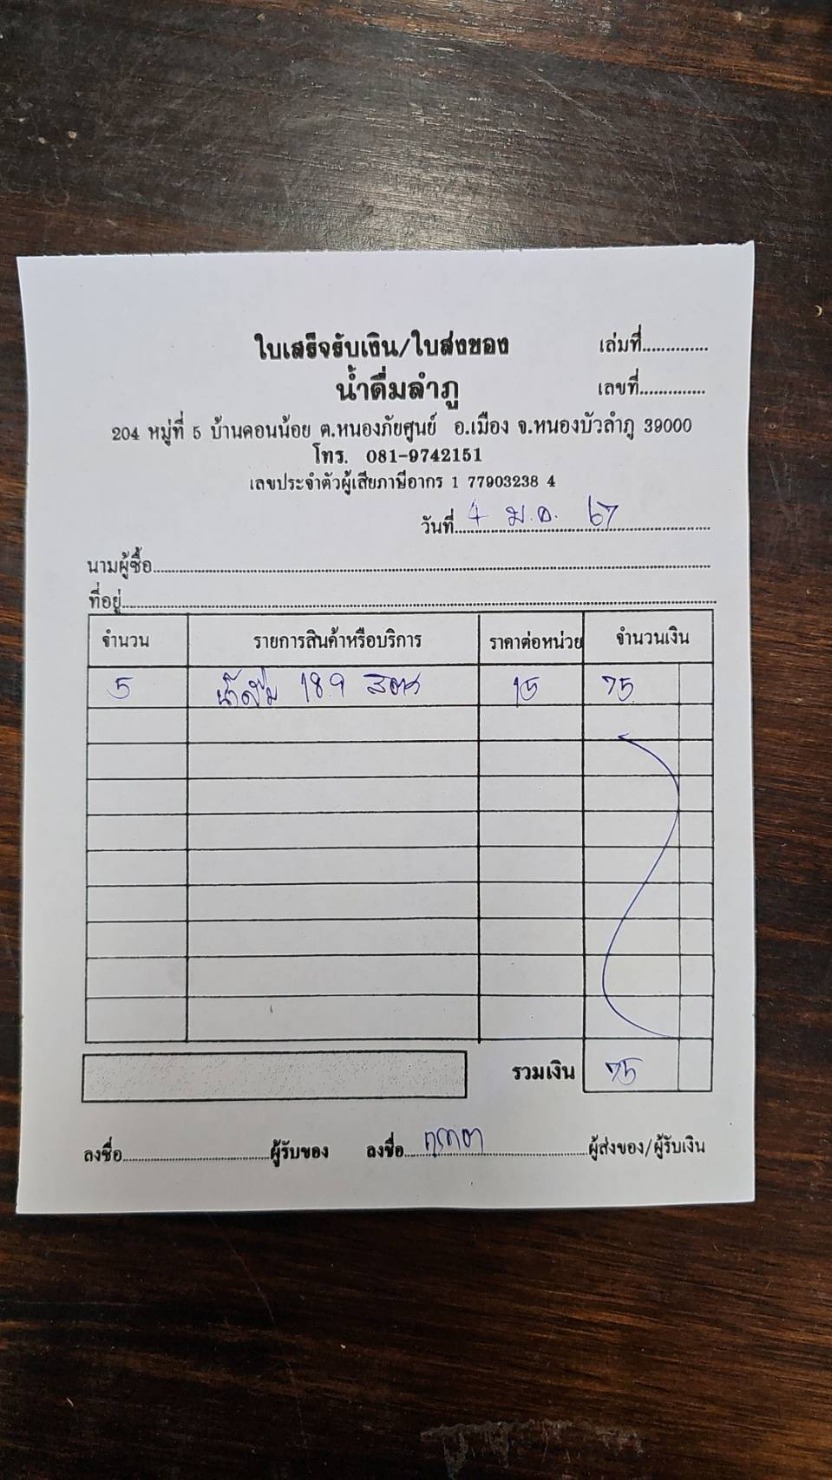 ใบเสร็จรับเงิน/ใบส่งของ เล่มที่..............
น้ำดื่มลำภู เลขที่..............
204 หมู่ที่ 5 บ้านดอนน้อย ต.หนองภัยศูนย์ อ.เมือง จ.หนองบัวลำภู 39000
โทร. 081-9742151
เลขประจำตัวผู้เสียภาษีอากร 1 77903238 4
วันที่ 4 ม.ค. 67
นามผู้ซื้อ
ที่อยู่
จำนวน รายการสินค้าหรือบริการ ราคาต่อหน่วย จำนวนเงิน
5 น้ำดื่ม 18.9 ลิตร 15 75
รวมเงิน 75
ลงชื่อ ผู้รับของ ลงชื่อ ผู้ส่งของ/ผู้รับเงิน